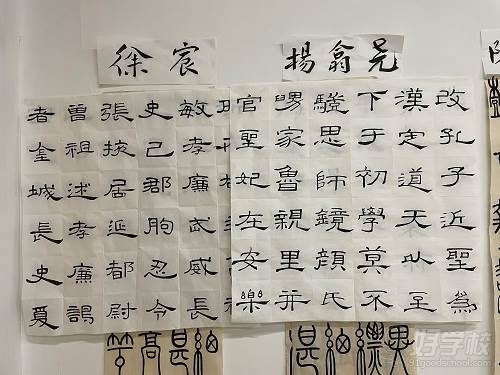 徐宸
楊翕
改孔子近聖為
漢定道天以至
下于初學莫不
驡思師鏡顏氏
舅家魯親里并
官聖妃在安樂
敏孝廉武威長
史巴郡朐忍令
張掖居延都尉
曾祖述孝廉謁
者金城長史夏
好学校
91goodschool.com